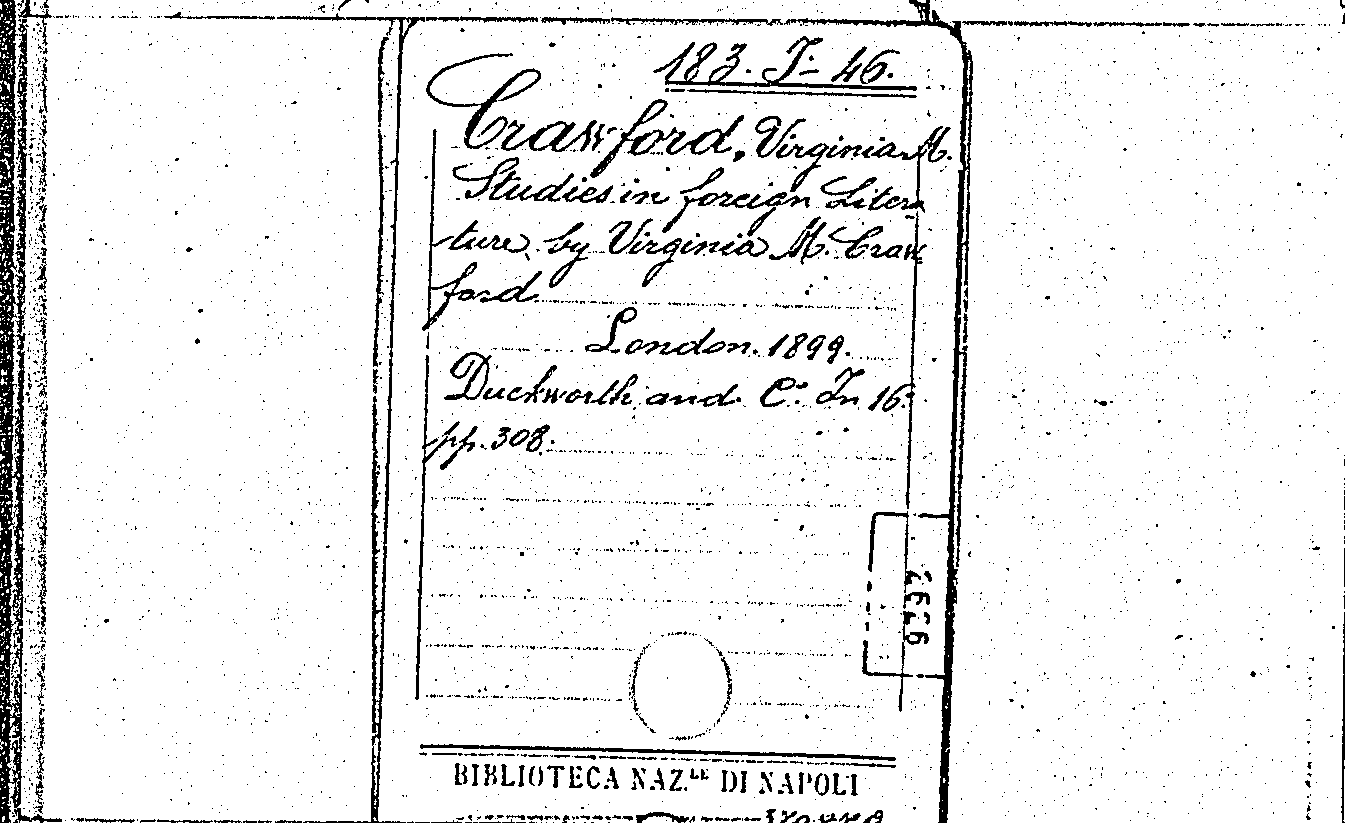 183. J-46.
Crawford, Virginia M.
Studies in foreign Litera
ture, by Virginia M. Craw
ford
London. 1899.
Duckworth and C.° In 16.°
pp. 308.
BIBLIOTECA NAZ.LE DI NAPOLI